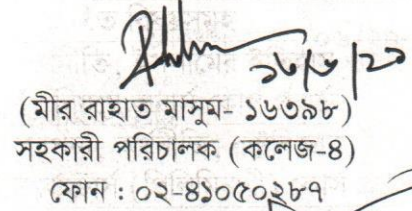 ১৬/৬/২০
(মীর রাহাত মাসুম- ১৬৩৯৮)
সহকারী পরিচালক (কলেজ-৪)
ফোন : ০২-৪১০৫০২৮৭